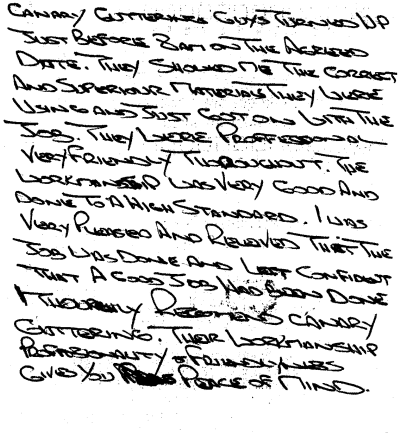 CANARY GUTTERING GUYS TURNED UP
JUST BEFORE 8AM ON THE AGREED
DATE. THEY SHOWED ME THE CORRECT
AND SUPERIOUR MATERIALS THEY WERE
USING AND JUST GOT ON WITH THE
JOB. THEY WERE PROFFESSIONAL
VERY FRIENDLY THOROUGHOUT. THE
WORKMANSHIP WAS VERY GOOD AND
DONE TO A HIGH STANDARD. I WAS
VERY PLEASED AND RELIEVED THAT THE
JOB WAS DONE AND LEFT CONFIDENT
THAT A GOOD JOB HAD BEEN DONE
I RECOMEND CANARY
GUTTERING. THEIR WORKMANSHIP
& FRIENDLYNESS
GIVES YOU PEACE OF MIND.